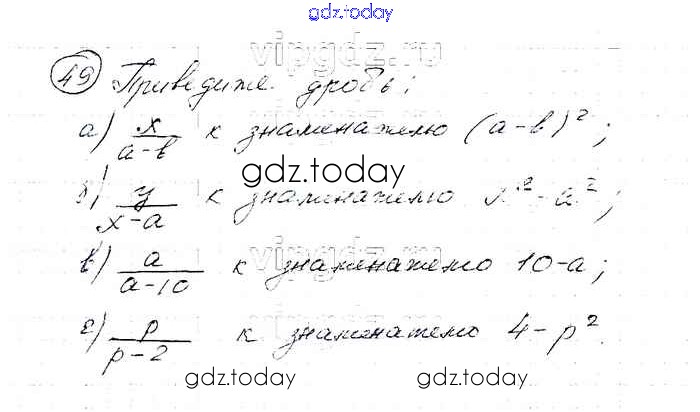 gdz.today
vipgdz.ru
49 Приведите дробь:
а) x/(a-b) к знаменателю (a-b)²;
gdz.today
б) y/(x-a) к знаменателю x²-a²;
vipgdz.ru
в) a/(a-10) к знаменателю 10-a;
г) p/(p-2) к знаменателю 4-p².
gdz.today gdz.today